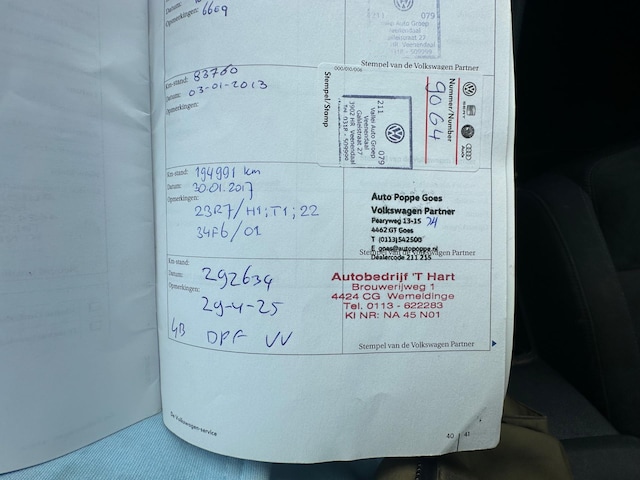 Datum:
Opmerkingen: 6609
211 079
Auto Groep
Veenendaal
Stempel van de Volkswagen Partner
Km-stand: 83760
Datum: 03-01-2013
Opmerkingen:
000/010/006
Stempel/Stamp
211 079
Vallei Auto Groep
Veenendaal
Galileistraat 27
3902 HR Veenendaal
Tel. 0318 - 509999
Nummer/Number
9064
SEAT
Audi
Km-stand: 194991 km
Datum: 30.01.2017
Opmerkingen:
23R7/H1;T1;22
34F6/01
Auto Poppe Goes
Volkswagen Partner
Pearyweg 13-15
4462 GT Goes
T (0113)542500
E goes@autopoppe.nl
Dealercode 211 215
Stempel van de Volkswagen Partner
Km-stand:
Datum: 292634
Opmerkingen:
29-4-25
DPF VV
Autobedrijf 'T Hart
Brouwerijweg 1
4424 CG Wemeldinge
Tel. 0113 - 622283
KI NR: NA 45 N01
Stempel van de Volkswagen Partner
De Volkswagen-service
40 41